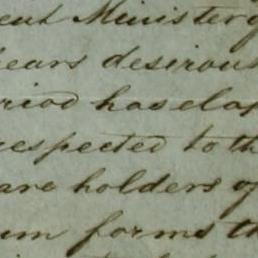 ent Ministery
ears desirous
riod has elap
respected to th
are holders of
um forms th